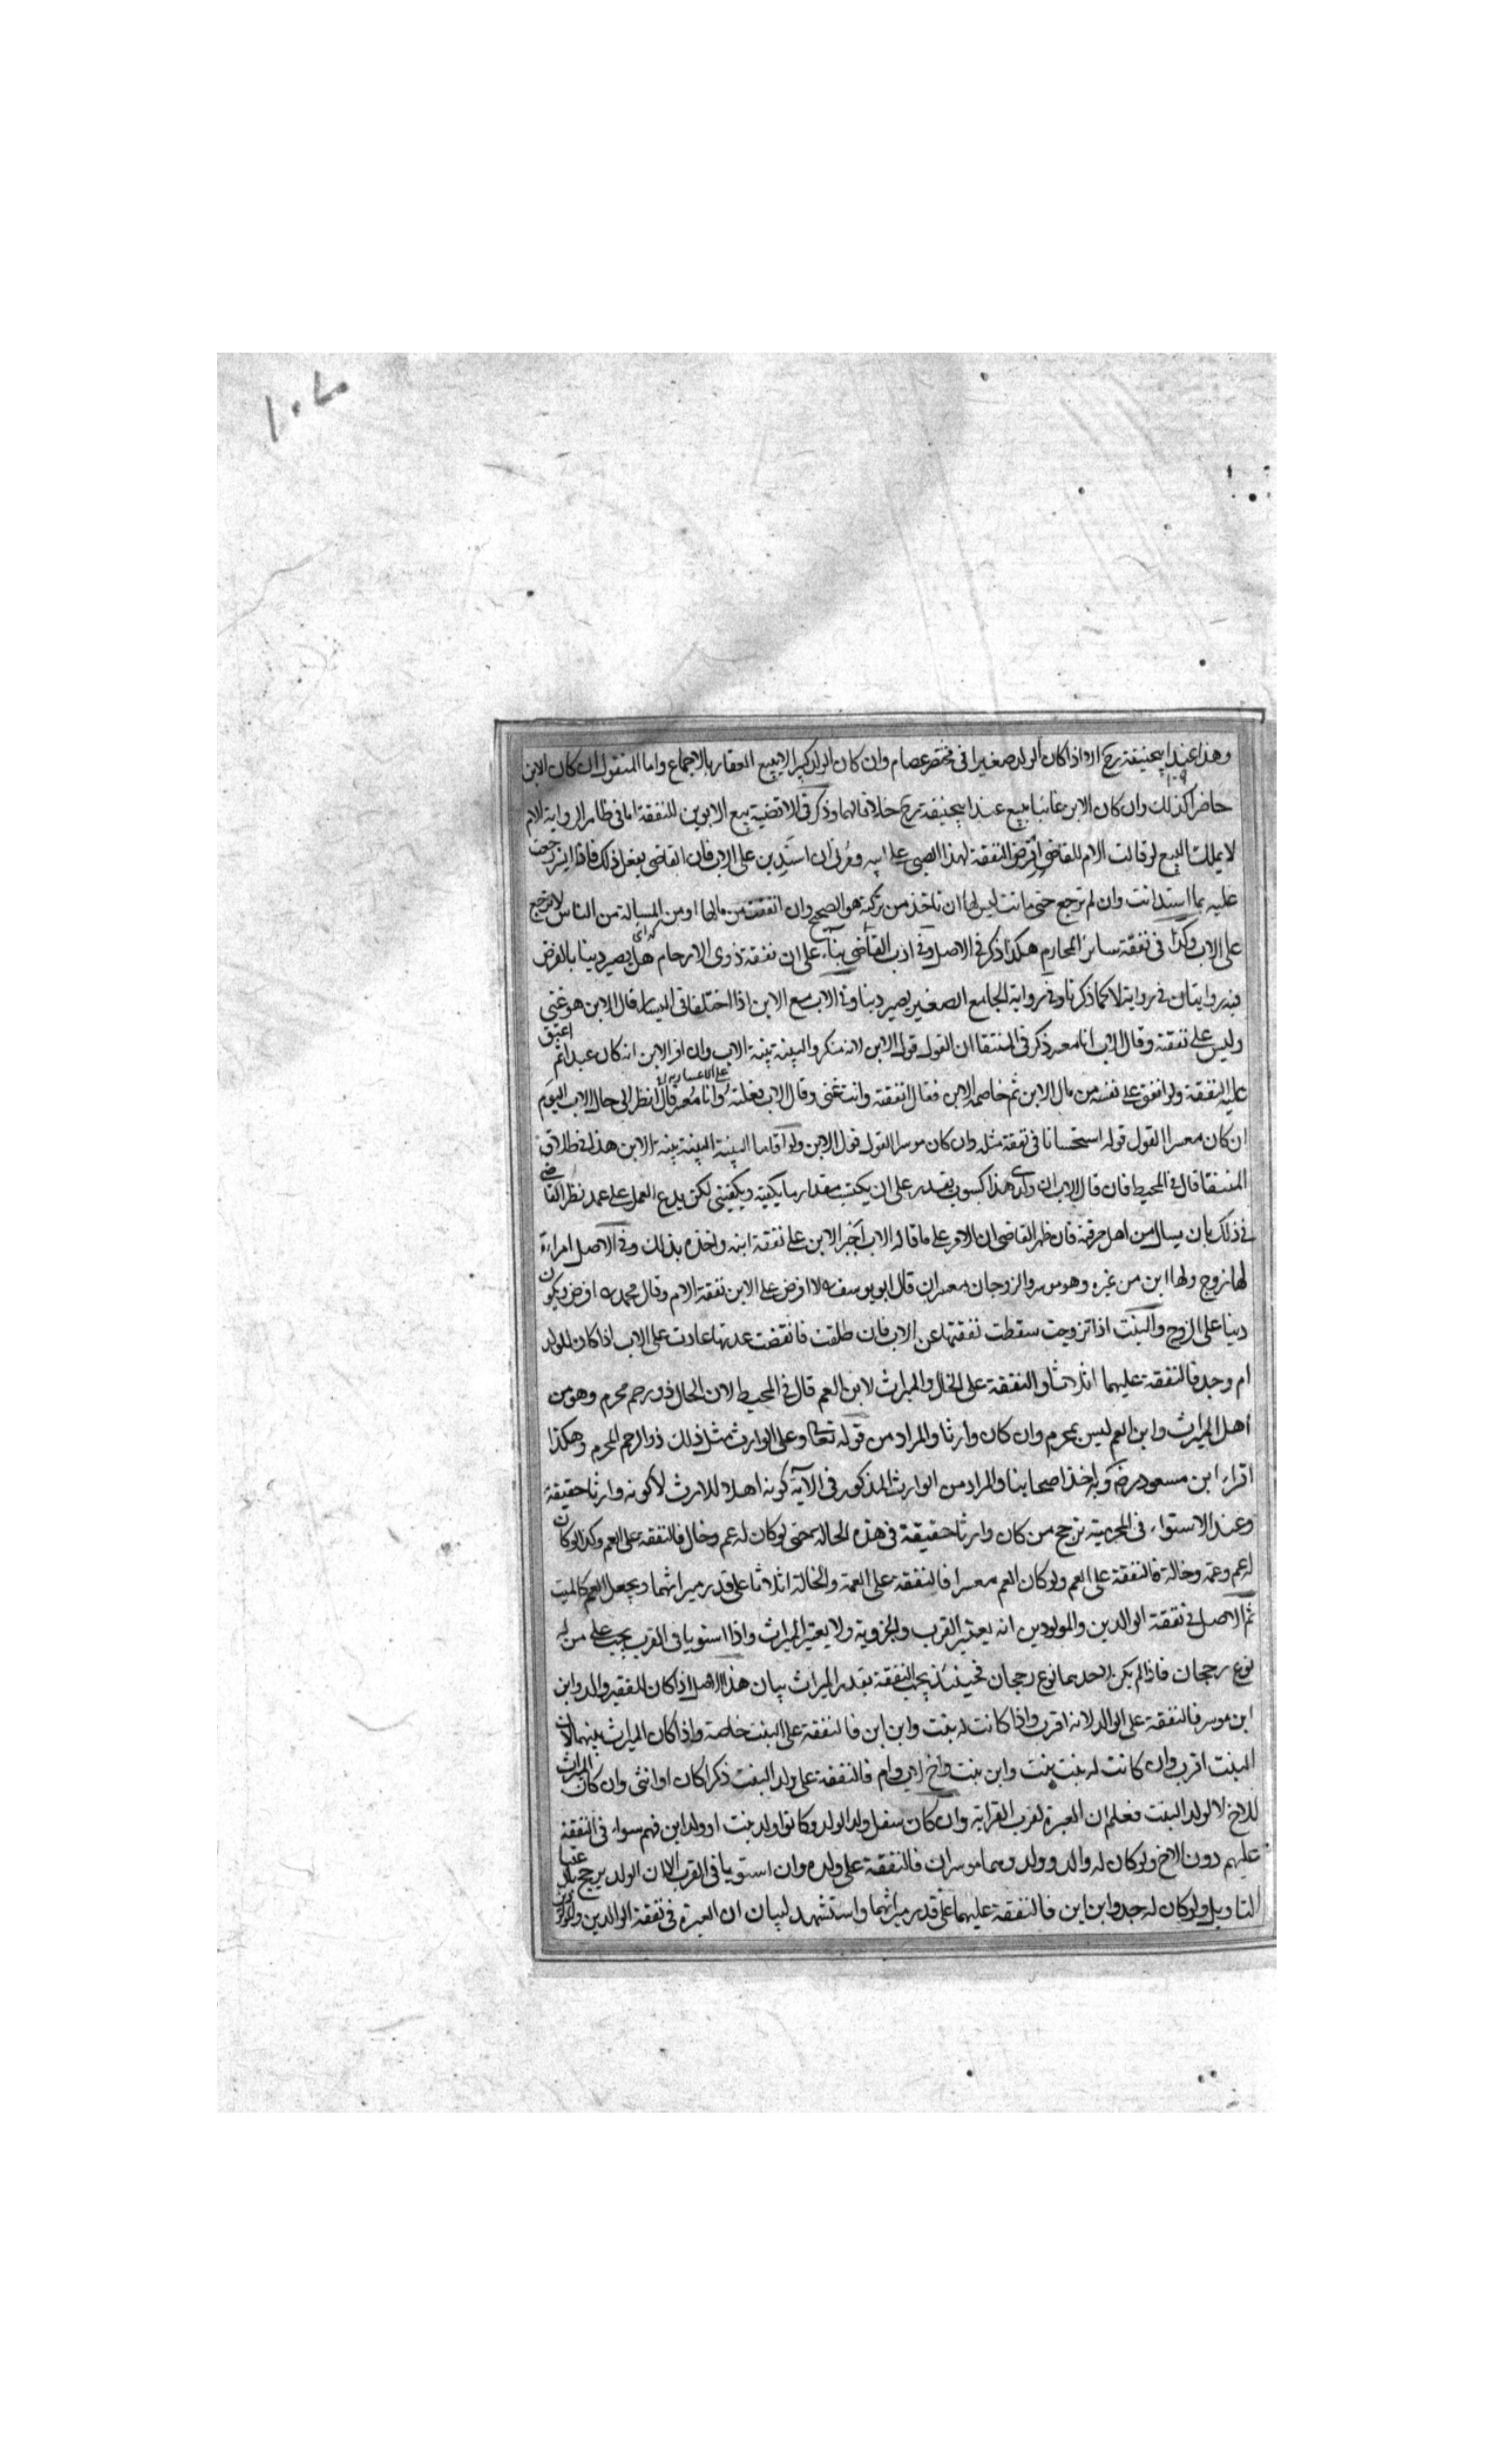 ١٠٧
وهذا عند ابيحنيفة رح اراد اذا كان الولد صغيرا في مختصر عصام وان كان الولد كبيرا لا يبيع العقار بالاجماع واما المنقول ان كان الابن
حاضرا كذلك وان كان الابن غائبا يبيع عند ابيحنيفة رح خلافا لهما وذكر في الاقضية بيع الابوين للنفقة اما في ظاهر الرواية الام
لا يملك البيع لو قالت الام للقاضي افرض النفقة لهذا الصبي على ابيه ومرني ان استدين على الاب فان القاضي يفعل ذلك فاذا ايسر رجعت
عليه بما استدانت وان لم ترجع حتى مات ليس لها ان تاخذ من تركته هو الصحيح وان انفقت من مالها او من المسئلة من الناس لا ترجع
على الاب وكذا في نفقة سائر المحارم هكذا ذكر في الاصل وفي ادب القاضي بناء على ان نفقة ذوى الارحام هل يصير دينا بالفرض
فيه روايتان في رواية لا كما ذكرنا وفي رواية الجامع الصغير يصير دينا وفي الاب مع الابن اذا اختلفا في اليسار قال الابن هو غني
وليس على نفقته وقال الاب انا معسر ذكر في المنتقا ان القول قول الابن لانه منكر والبينة بينة الاب وان اقر الابن انه كان عبدا ثم اعتق
عليه النفقة ولو انفق على نفسه من مال الابن ثم خاصمه الابن فقال انفقته وانت غني وقال الاب فعلته وانا معسر قال انظر الى حال الاب اليوم
ان كان معسرا القول قوله استحسانا في نفقة مثله وان كان موسرا القول قول الابن ولو اقاما البينة البينة بينة الابن هذا في طلاق
المنتقا قال في المحيط فان قال الاب ان ولدي هذا كسوب يقدر على ان يكتسب مقدار ما يكفيه ويكفيني لكن يدع العمل على عمد نظر القاضي
في ذلك بان يسال من اهل حرفته فان ظهر القاضي ان الامر على ما قاله الاب اجبر الابن على نفقة ابيه واخذه بذلك وفي الاصل امراءة
لها زوج ولها ابن من غيره وهو موسر والزوجان معسران قال ابو يوسف لا افرض على الابن نفقة الام وقال محمد افرض ويكون
دينا على الزوج والبنت اذا تزوجت سقطت نفقتها عن الاب فان طلقت فانقضت عدتها عادت على الاب اذا كان للولد
ام وجد فالنفقة عليهما اثلاثا والنفقة على الخال والميراث لابن العم قال في المحيط لان الخال ذو رحم محرم وهو من
اهل الميراث وابن العم ليس بمحرم وان كان وارثا والمراد من قوله تعالى وعلى الوارث مثل ذلك ذو الرحم المحرم وهكذا
اقراء ابن مسعود رض وبه اخذ اصحابنا والمراد من الوارث المذكور في الآية كونه اهلا للارث لا كونه وارثا حقيقة
وعند الاستواء في المحرمية ترجح من كان وارثا حقيقة في هذه الحالة حتى لو كان له عم وخال فالنفقة على العم وكذا لو كان
له عم وعمة وخالة فالنفقة على العم ولو كان العم معسرا فالنفقة على العمة والخالة اثلاثا على قدر ميراثهما ويجعل العم كالميت
ثم الاصل في نفقة الوالدين والمولودين انه يعتبر القرب والجزوية ولا يعتبر الميراث واذا استويا في القرب يجب على من له
نوع رجحان فاذا لم يكن لاحدهما نوع رجحان فحينئذ يجب النفقة بقدر الميراث بيان هذا الاصل اذا كان للفقير والد وابن
ابن موسر فالنفقة على الوالد لانه اقرب واذا كانت له بنت وابن ابن فالنفقة على البنت خاصة واذا كان الميراث بينهما لان
البنت اقرب وان كانت له بنت بنت وابن بنت واخ لاب وام فالنفقة على ولد البنت ذكرا كان او انثى وان كان الميراث
للاخ لا لولد البنت فعلم ان العبرة لقرب القرابة وان كان سفل ولد الولد وكانوا ولد بنت او ولد ابن فهم سواء في النفقة
عليهم دون الاخ ولو كان له والد وولد وهما موسران فالنفقة على ولده وان استويا في القرب الا ان الولد يرجح باعتبار
التاويل ولو كان له جد وابن ابن فالنفقة عليهما على قدر ميراثهما واستشهد لبيان ان العبرة في نفقة الوالدين والمولودين